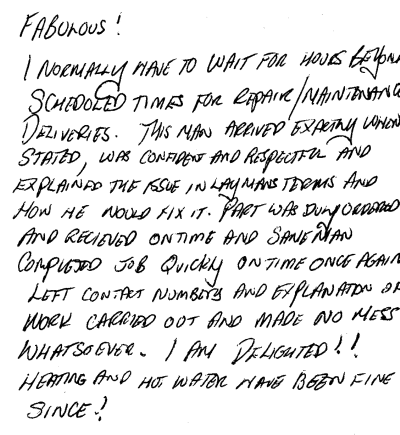 FABULOUS!
I NORMALLY HAVE TO WAIT FOR HOURS BEYOND
SCHEDULED TIMES FOR REPAIR/MAINTENANC
DELIVERIES. THIS MAN ARRIVED EXACTLY WHEN
STATED, WAS CONFIDENT AND RESPECTFUL AND
EXPLAINED THE ISSUE IN LAYMANS TERMS AND
HOW HE WOULD FIX IT. PART WAS DULY ORDERED
AND RECIEVED ON TIME AND SAME MAN
COMPLETED JOB QUICKLY ON TIME ONCE AGAIN
LEFT CONTACT NUMBERS AND EXPLANATION OF
WORK CARRIED OUT AND MADE NO MESS
WHATSOEVER. I AM DELIGHTED!!
HEATING AND HOT WATER HAVE BEEN FINE
SINCE!